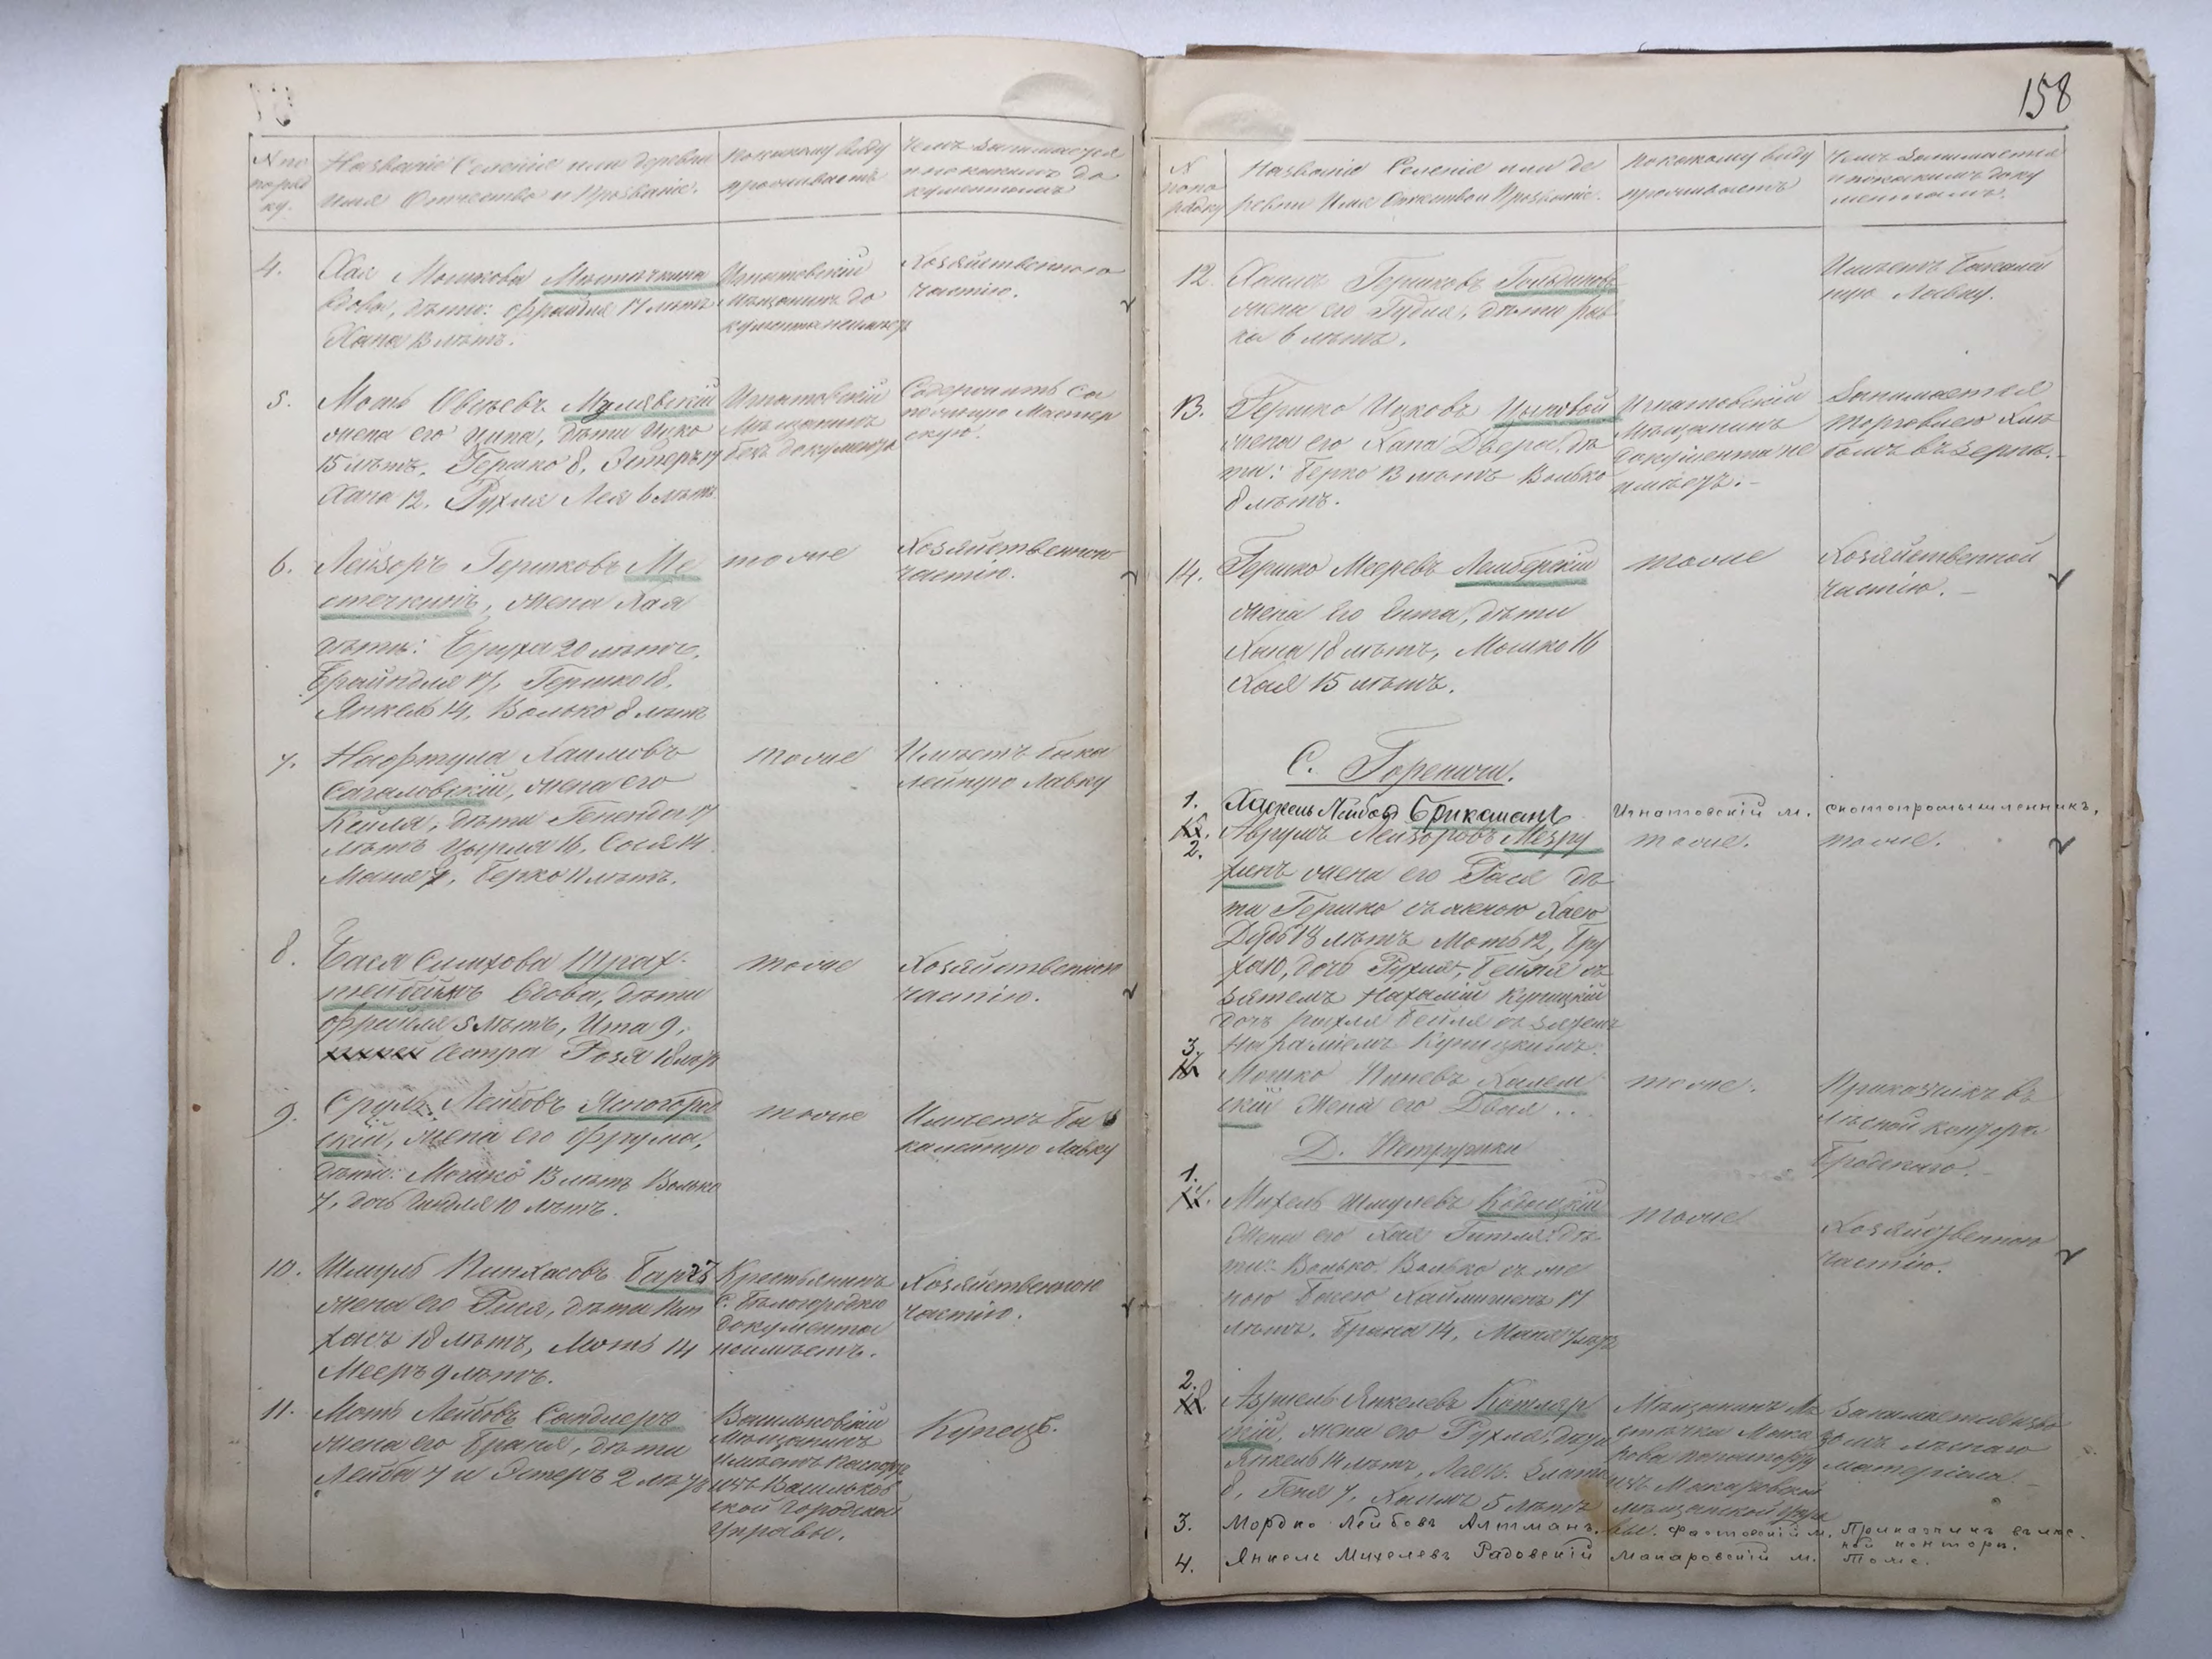 158
№ по порядку.
Названіе Селенія или деревни
Имя Отчество и Прозваніе.
По какому виду
проживаетъ
Чемъ занимается
и по какимъ до
кументамъ
4.
Хая Мошкова Мѣстечкина
вдова, дѣти: Фрайдля 17 лѣтъ
Хана 13 лѣтъ.
Игнатовскій
Мѣщанинъ до
кумента неимѣетъ
Хозяйственною
частію.
5.
Моть Овсѣевъ
жена его Ципа, дѣти Ицко
15 лѣтъ, Гершко 8, Эстеръ 17
Хача 12, Рухля Лея 6 лѣтъ
Игнатовскій
Мѣщанинъ
безъ документа
Содержитъ са
пожную Мастер
скую.
6.
Лейзоръ Гершковъ Ме
стечкинъ, жена Хая
дѣти: Бруха 20 лѣтъ,
Брайндля 17, Гершко 18,
Янкель 14, Волько 8 лѣтъ
тоже
Хозяйственною
частію.
7.
Нафтула Хаимовъ
Сагаловскій, жена его
Кейля, дѣти Гененда 17
лѣтъ Цырля 16, Сося 14
Маня 7, Берко 11 лѣтъ.
тоже
Имѣетъ бака
лейную Лавку
8.
Бася Симхова Трах-
тенбейгъ вдова, дѣти
Фрайля 5 лѣтъ, Ита 9,
Сестра Розя 18 лѣтъ
тоже
Хозяйственною
частію.
9.
Сруль Лейбовъ Ясногород
скій, жена его Фрума,
дѣти: Мошко 13 лѣтъ Волько
7, дочь Гиндля 10 лѣтъ.
тоже
Имѣетъ Ба
калейную Лавку
10.
Шмуль Пинхасовъ
жена его Рися, дѣти Пин
хасъ 18 лѣтъ, Моть 14
Мееръ 9 лѣтъ.
Крестьянинъ
С. Бѣлогородки
документа
неимѣетъ.
Хозяйственною
частію.
11.
Моть Лейбовъ Сандлеръ
жена его Браня, дѣти
Лейба 7 и Эстеръ 2 лѣтъ
Васильковскій
Мѣщанинъ
имѣетъ паспортъ
изъ Васильков
ской городской
Управы.
Купецъ.
№ по порядку
Названіе Селенія или де
ревни Имя Отчество и Прозваніе.
По какому виду
проживаетъ
Чемъ Занимается
и по какимъ доку
ментамъ.
12.
Хаимъ Гершковъ
жена его Гудля, дѣти Рив
ка 6 лѣтъ.
Имѣетъ Бакалей
ную Лавку.
13.
Гершко Ицковъ
жена его Хана Двера, дѣ
ти: Берко 13 лѣтъ Волько
8 лѣтъ.
Игнатовскій
Мѣщанинъ
документа не
имѣетъ.-
Занимается
торговлею Хлѣ
бомъ въ зернѣ.-
14.
Гершко Мееревъ Лемберскій
жена его Ента, дѣти
Хана 18 лѣтъ, Мошко 16
Хая 15 лѣтъ.
тоже
Хозяйственной
частію.-
С. Гореничи.
1.
Хаскель Лейбовъ Брикеманъ
Игнатовскій м.
скотопромышленникъ.
2.
Аврумъ Лейзоровъ Мезру
хинъ жена его Рася дѣ
ти Гершко съ женою Хаею
Дудь 18 лѣтъ Моть 12, Бру
ха 10, дочь Рухля, Бейля съ
зятемъ Нахаміи Куницкій
дочь Рухля Бейля съ зятемъ
Нахаміемъ Куницкимъ.
тоже.
тоже.
3.
Мошко Пиневъ
скій жена его Двоя..
тоже.
Прикащикъ въ
лѣсной конторѣ
Бродскаго.-
Д. Петрушки
1.
Михель Шмулевъ
Жена его Хая Гитля: дѣ
ти: Волько Волько съ же
ною Басею 17
лѣтъ, Брана 14, Маня 7 лѣтъ
тоже
Хозяйственною
частію.
2.
Азріель Янкелевъ Котляр
скій, жена его Рухля, дѣти
Янкель 14 лѣтъ, Лея 13, Злата
8, Геня 7, Хаимъ 5 лѣтъ
Мѣщанинъ Мѣ
стечка Мака
рова по паспорту
изъ Макаровской
мѣщанской Упра
вы.
Занимается изво
зомъ лѣснаго
матеріала.-
3.
Мордко Лейбовъ Алтманъ.
Фастовскій м.
Приказчикъ въ лѣс-
ной конторѣ.
4.
Янкель Михелевъ Радовскій
Макаровскій м.
Тоже.